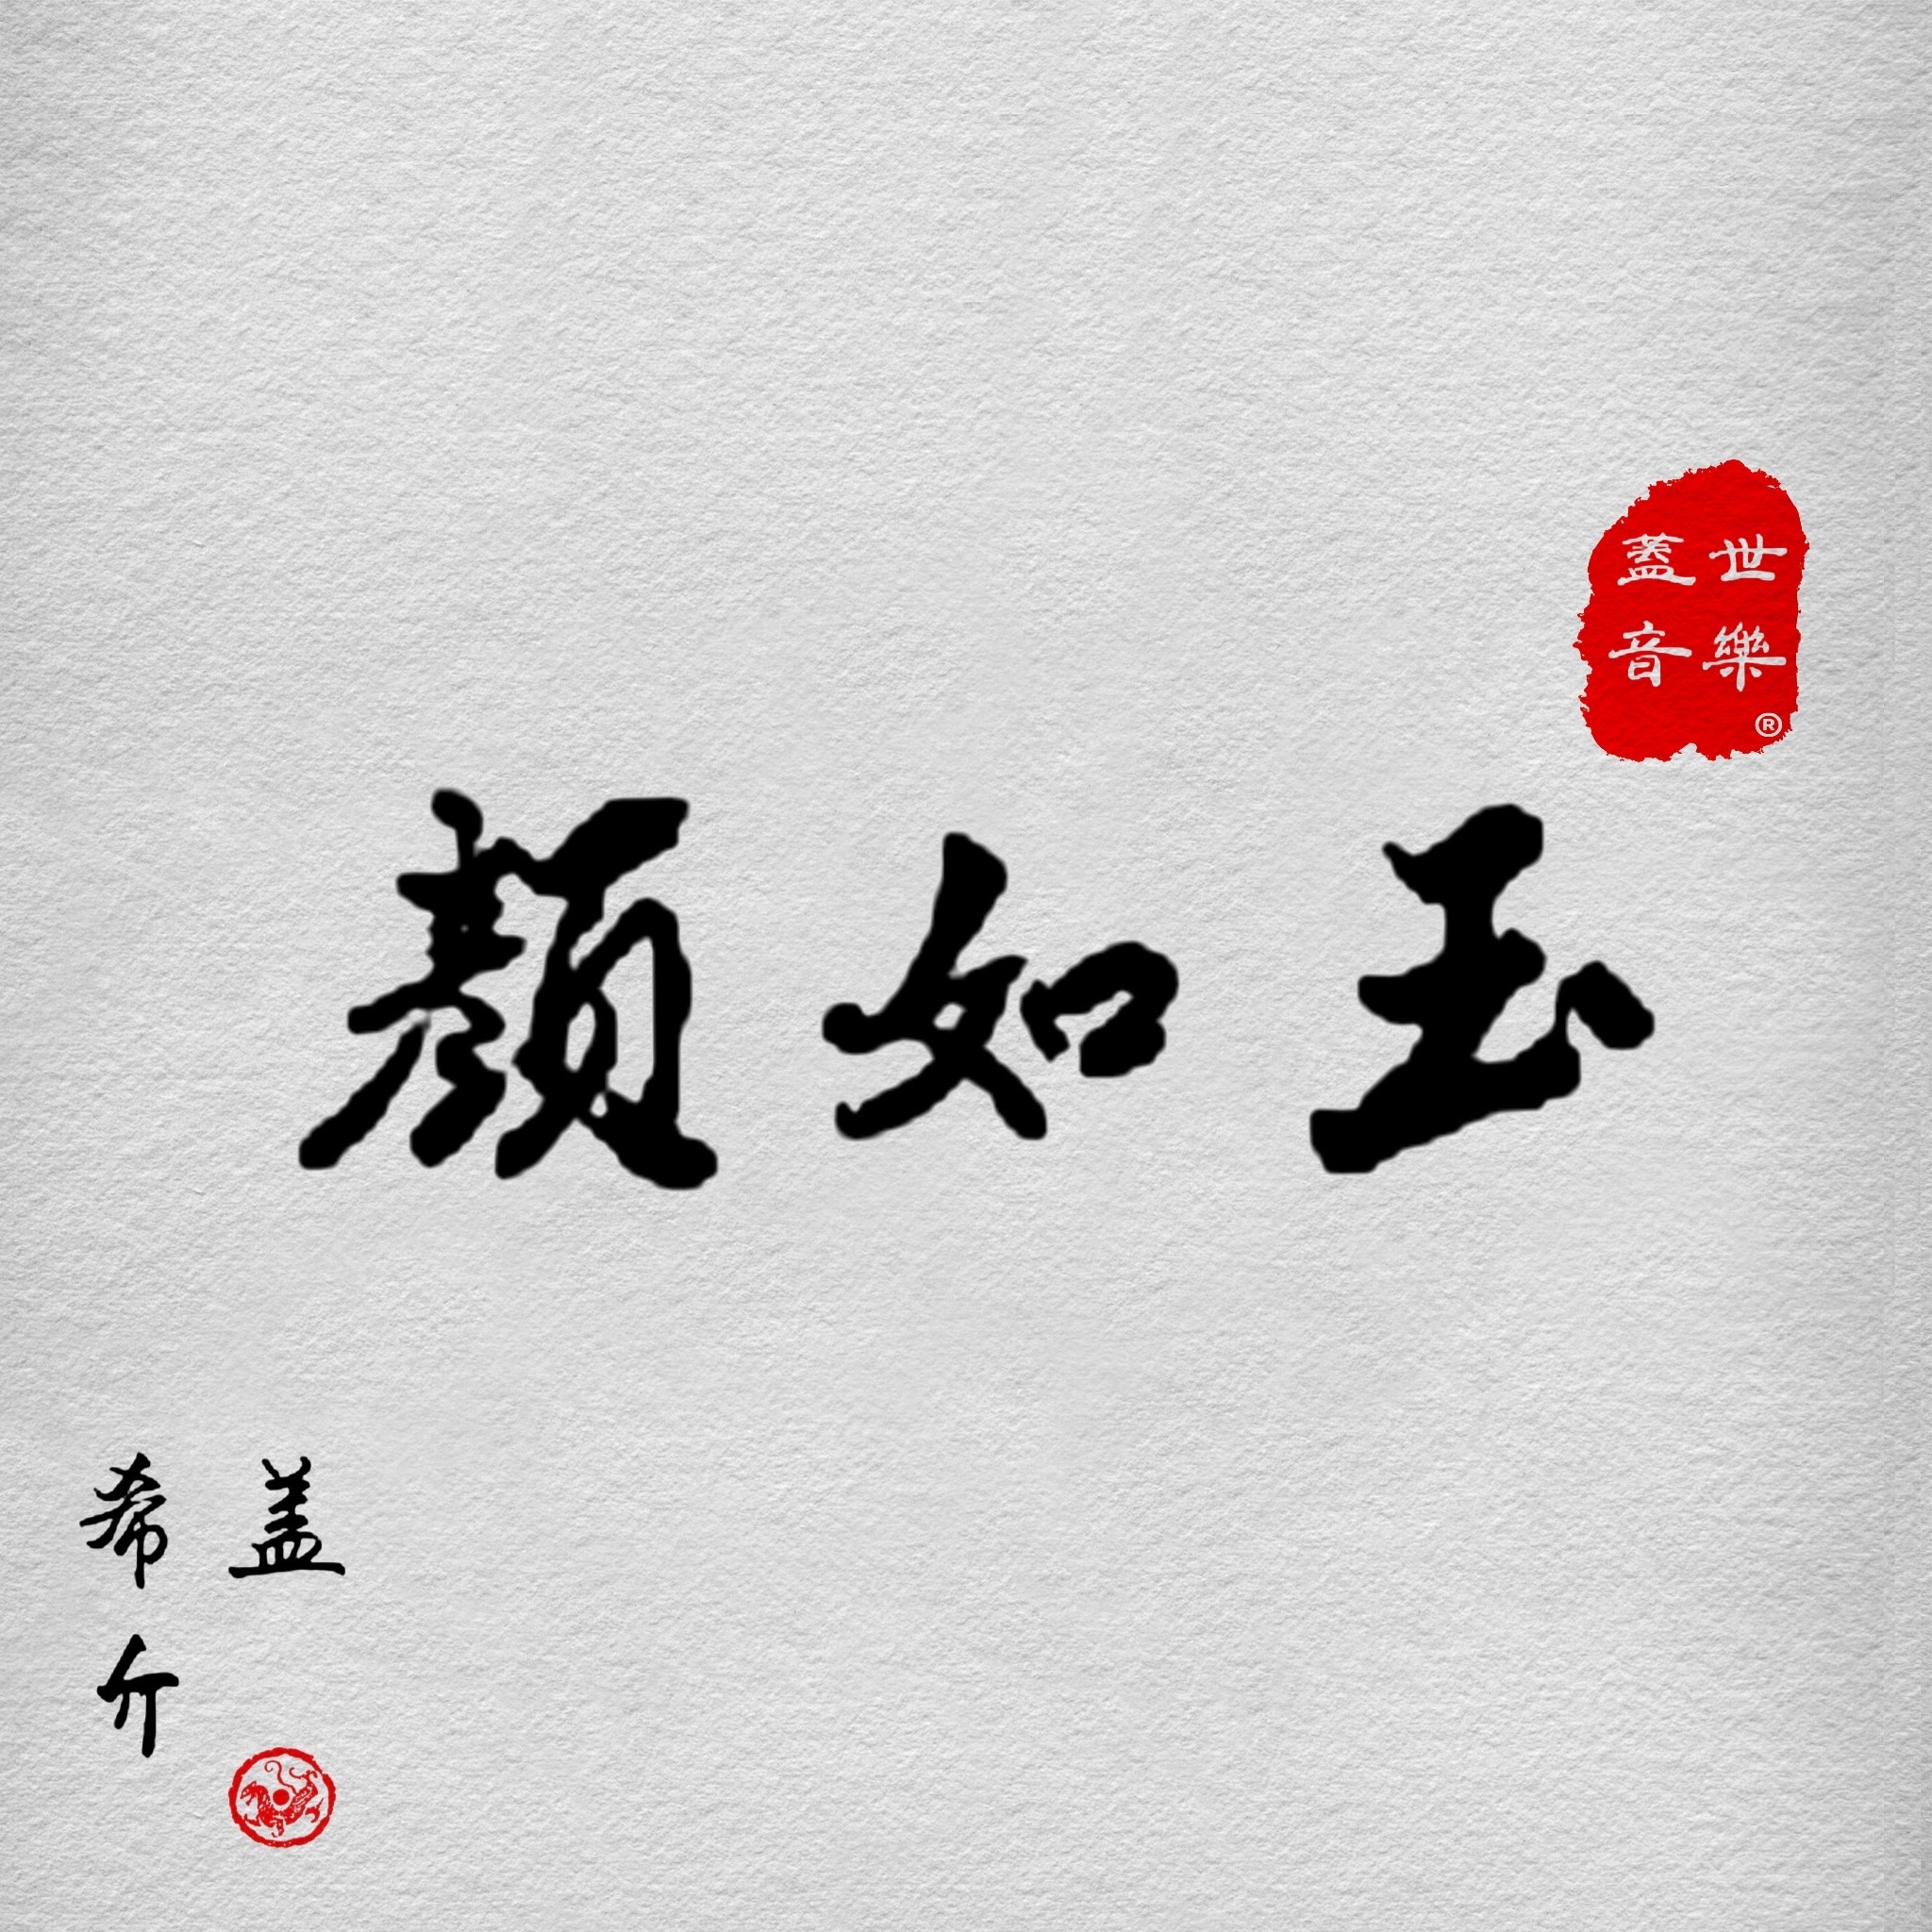 蓋世
音樂
®
顏如玉
盖
希介